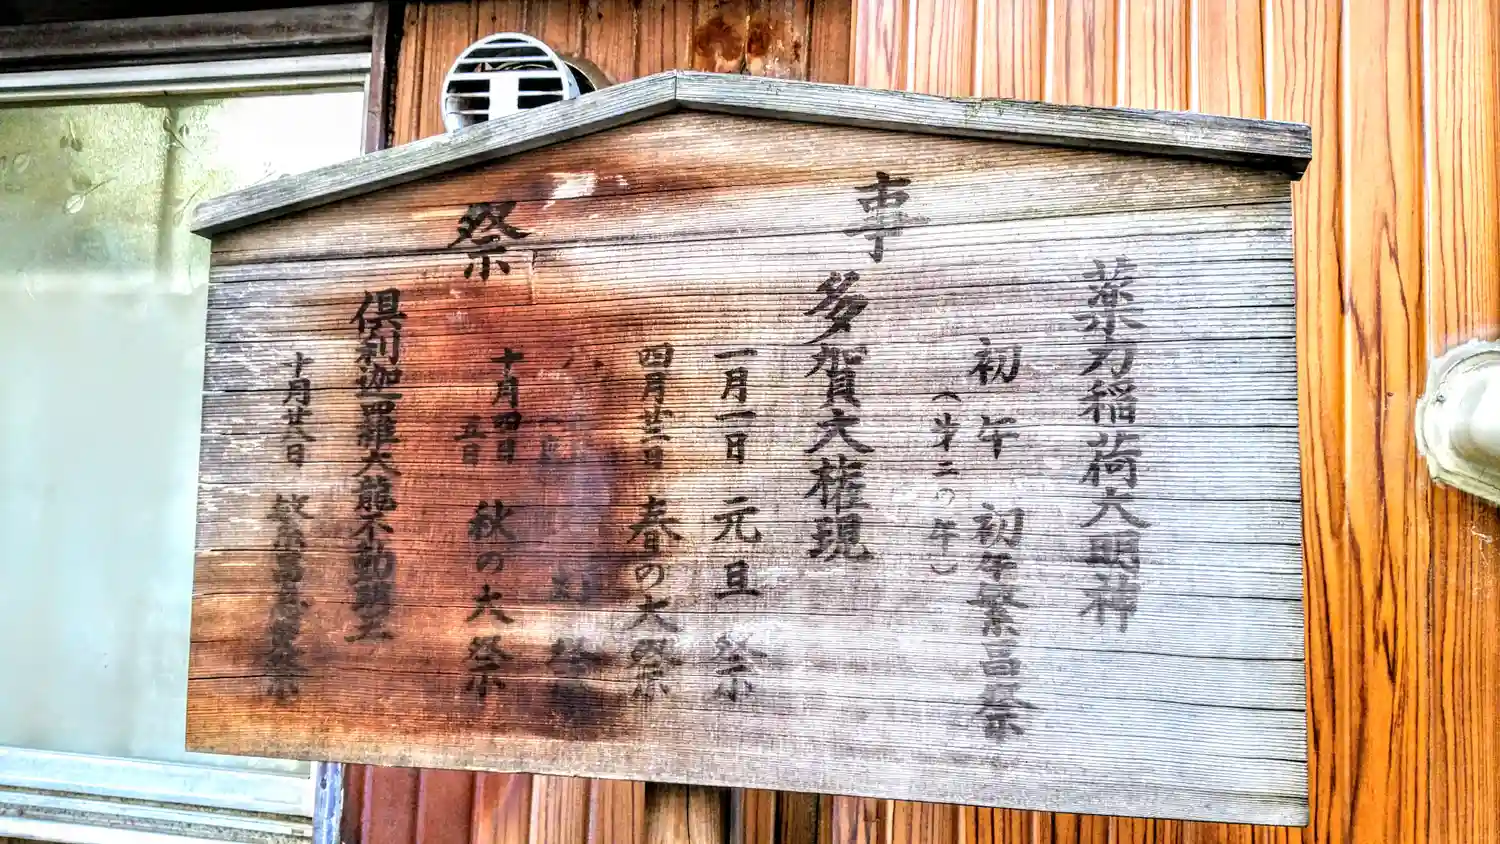 祭事
薬力稲荷大明神
初午 初午繁昌祭
(二の午)
多賀大権現
一月一日 元旦祭
四月廿二日 春の大祭
祭
十月四日 五日 秋の大祭
倶利迦羅大龍不動明王
十月廿八日 繁昌祭